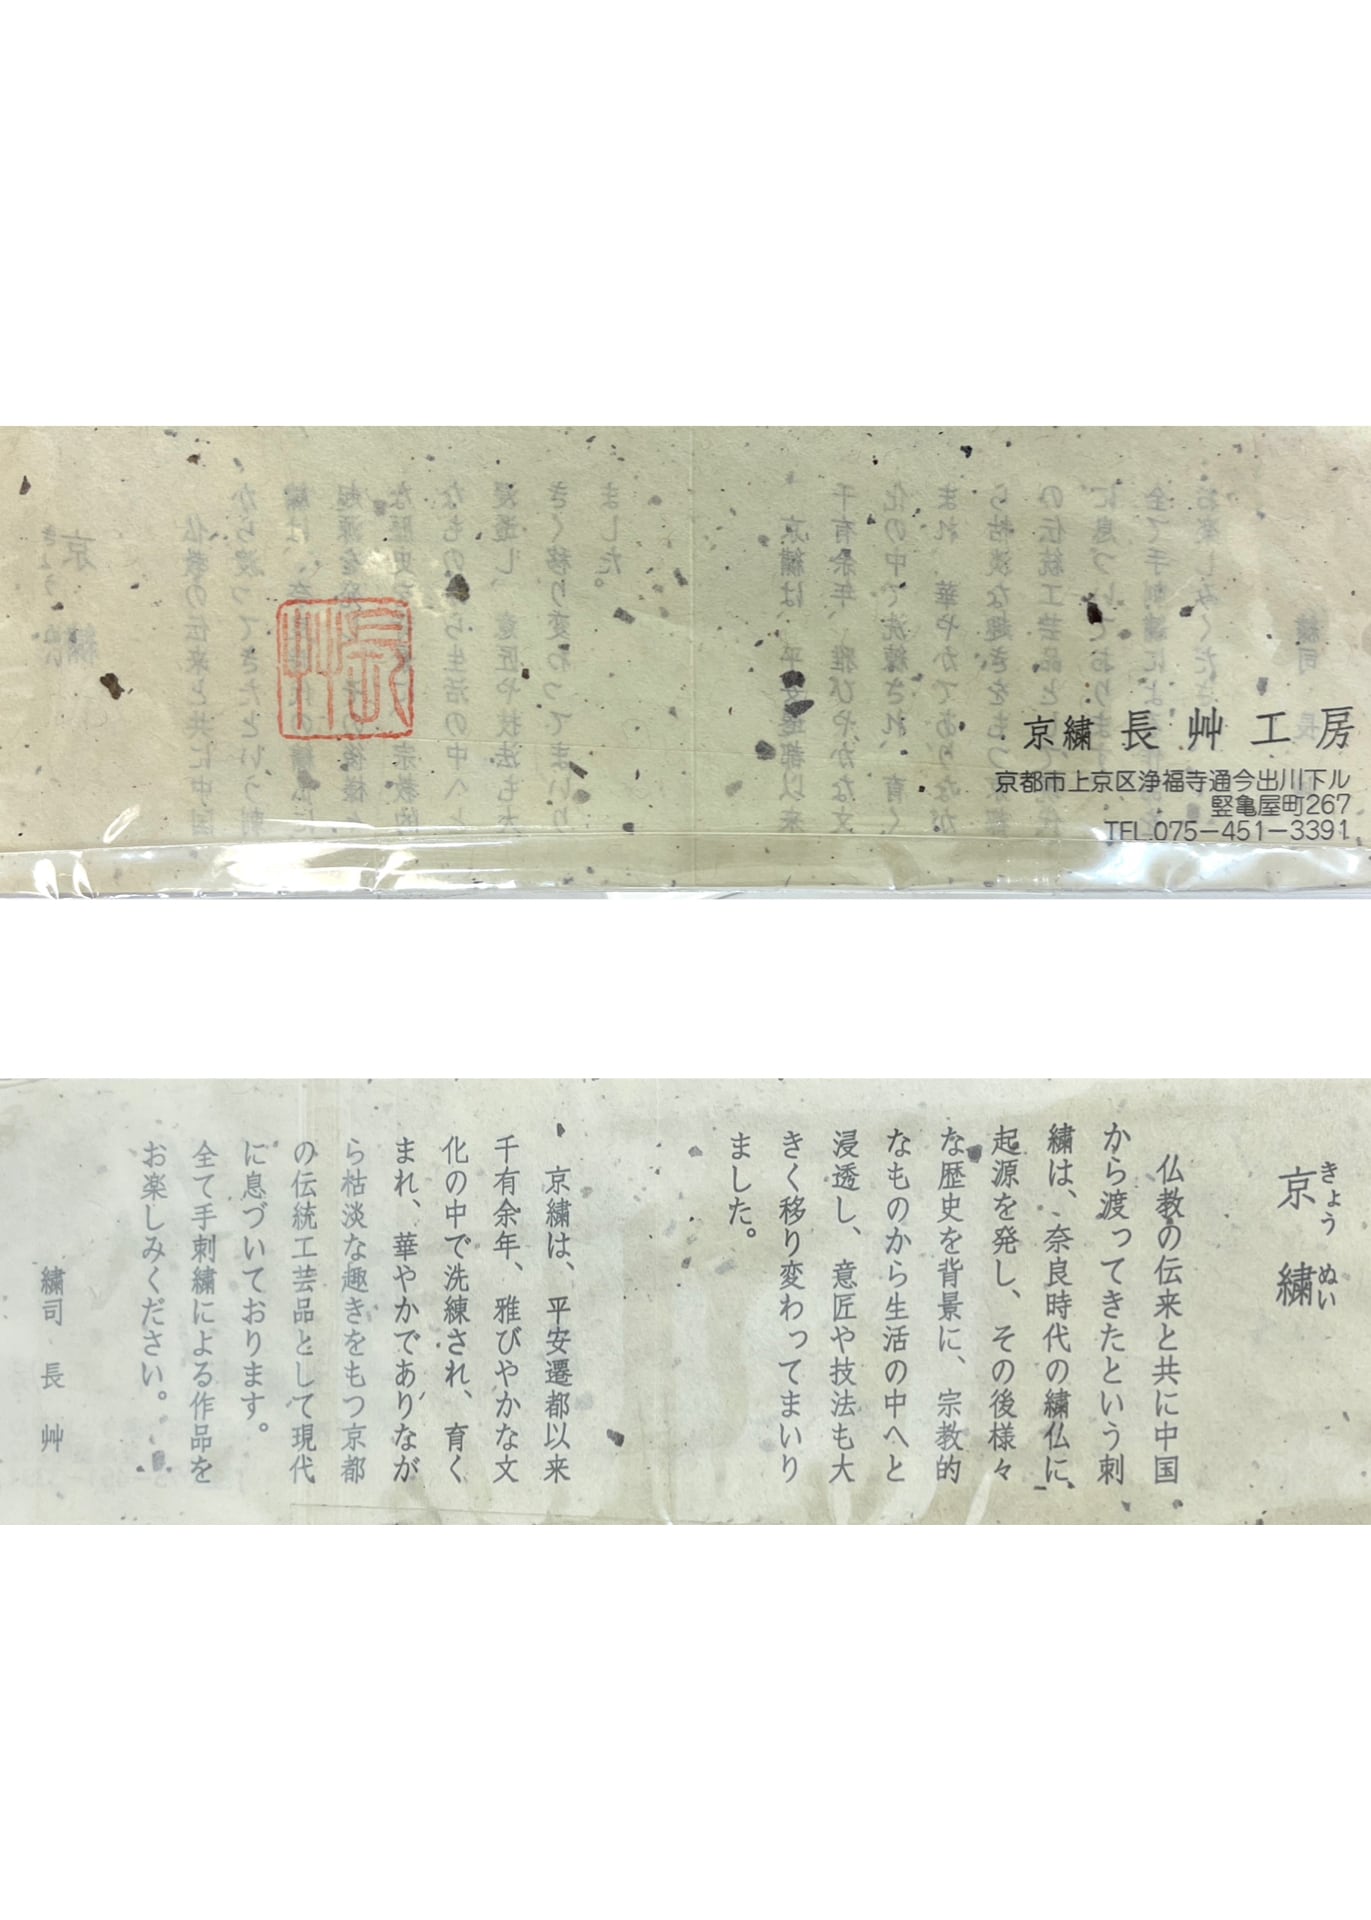 京繡 長艸工房
京都市上京区浄福寺通今出川下ル
竪亀屋町267
TEL.075-451-3391
長艸
きょう ぬい
京繡
仏教の伝来と共に中国
から渡ってきたという刺
繡は、奈良時代の繡仏に
起源を発し、その後様々
な歴史を背景に、宗教的
なものから生活の中へと
浸透し、意匠や技法も大
きく移り変わってまいり
ました。
京繡は、平安遷都以来
千有余年、雅びやかな文
化の中で洗練され、育く
まれ、華やかでありなが
ら枯淡な趣きをもつ京都
の伝統工芸品として現代
に息づいております。
全て手刺繡による作品を
お楽しみください。
繡司 長艸